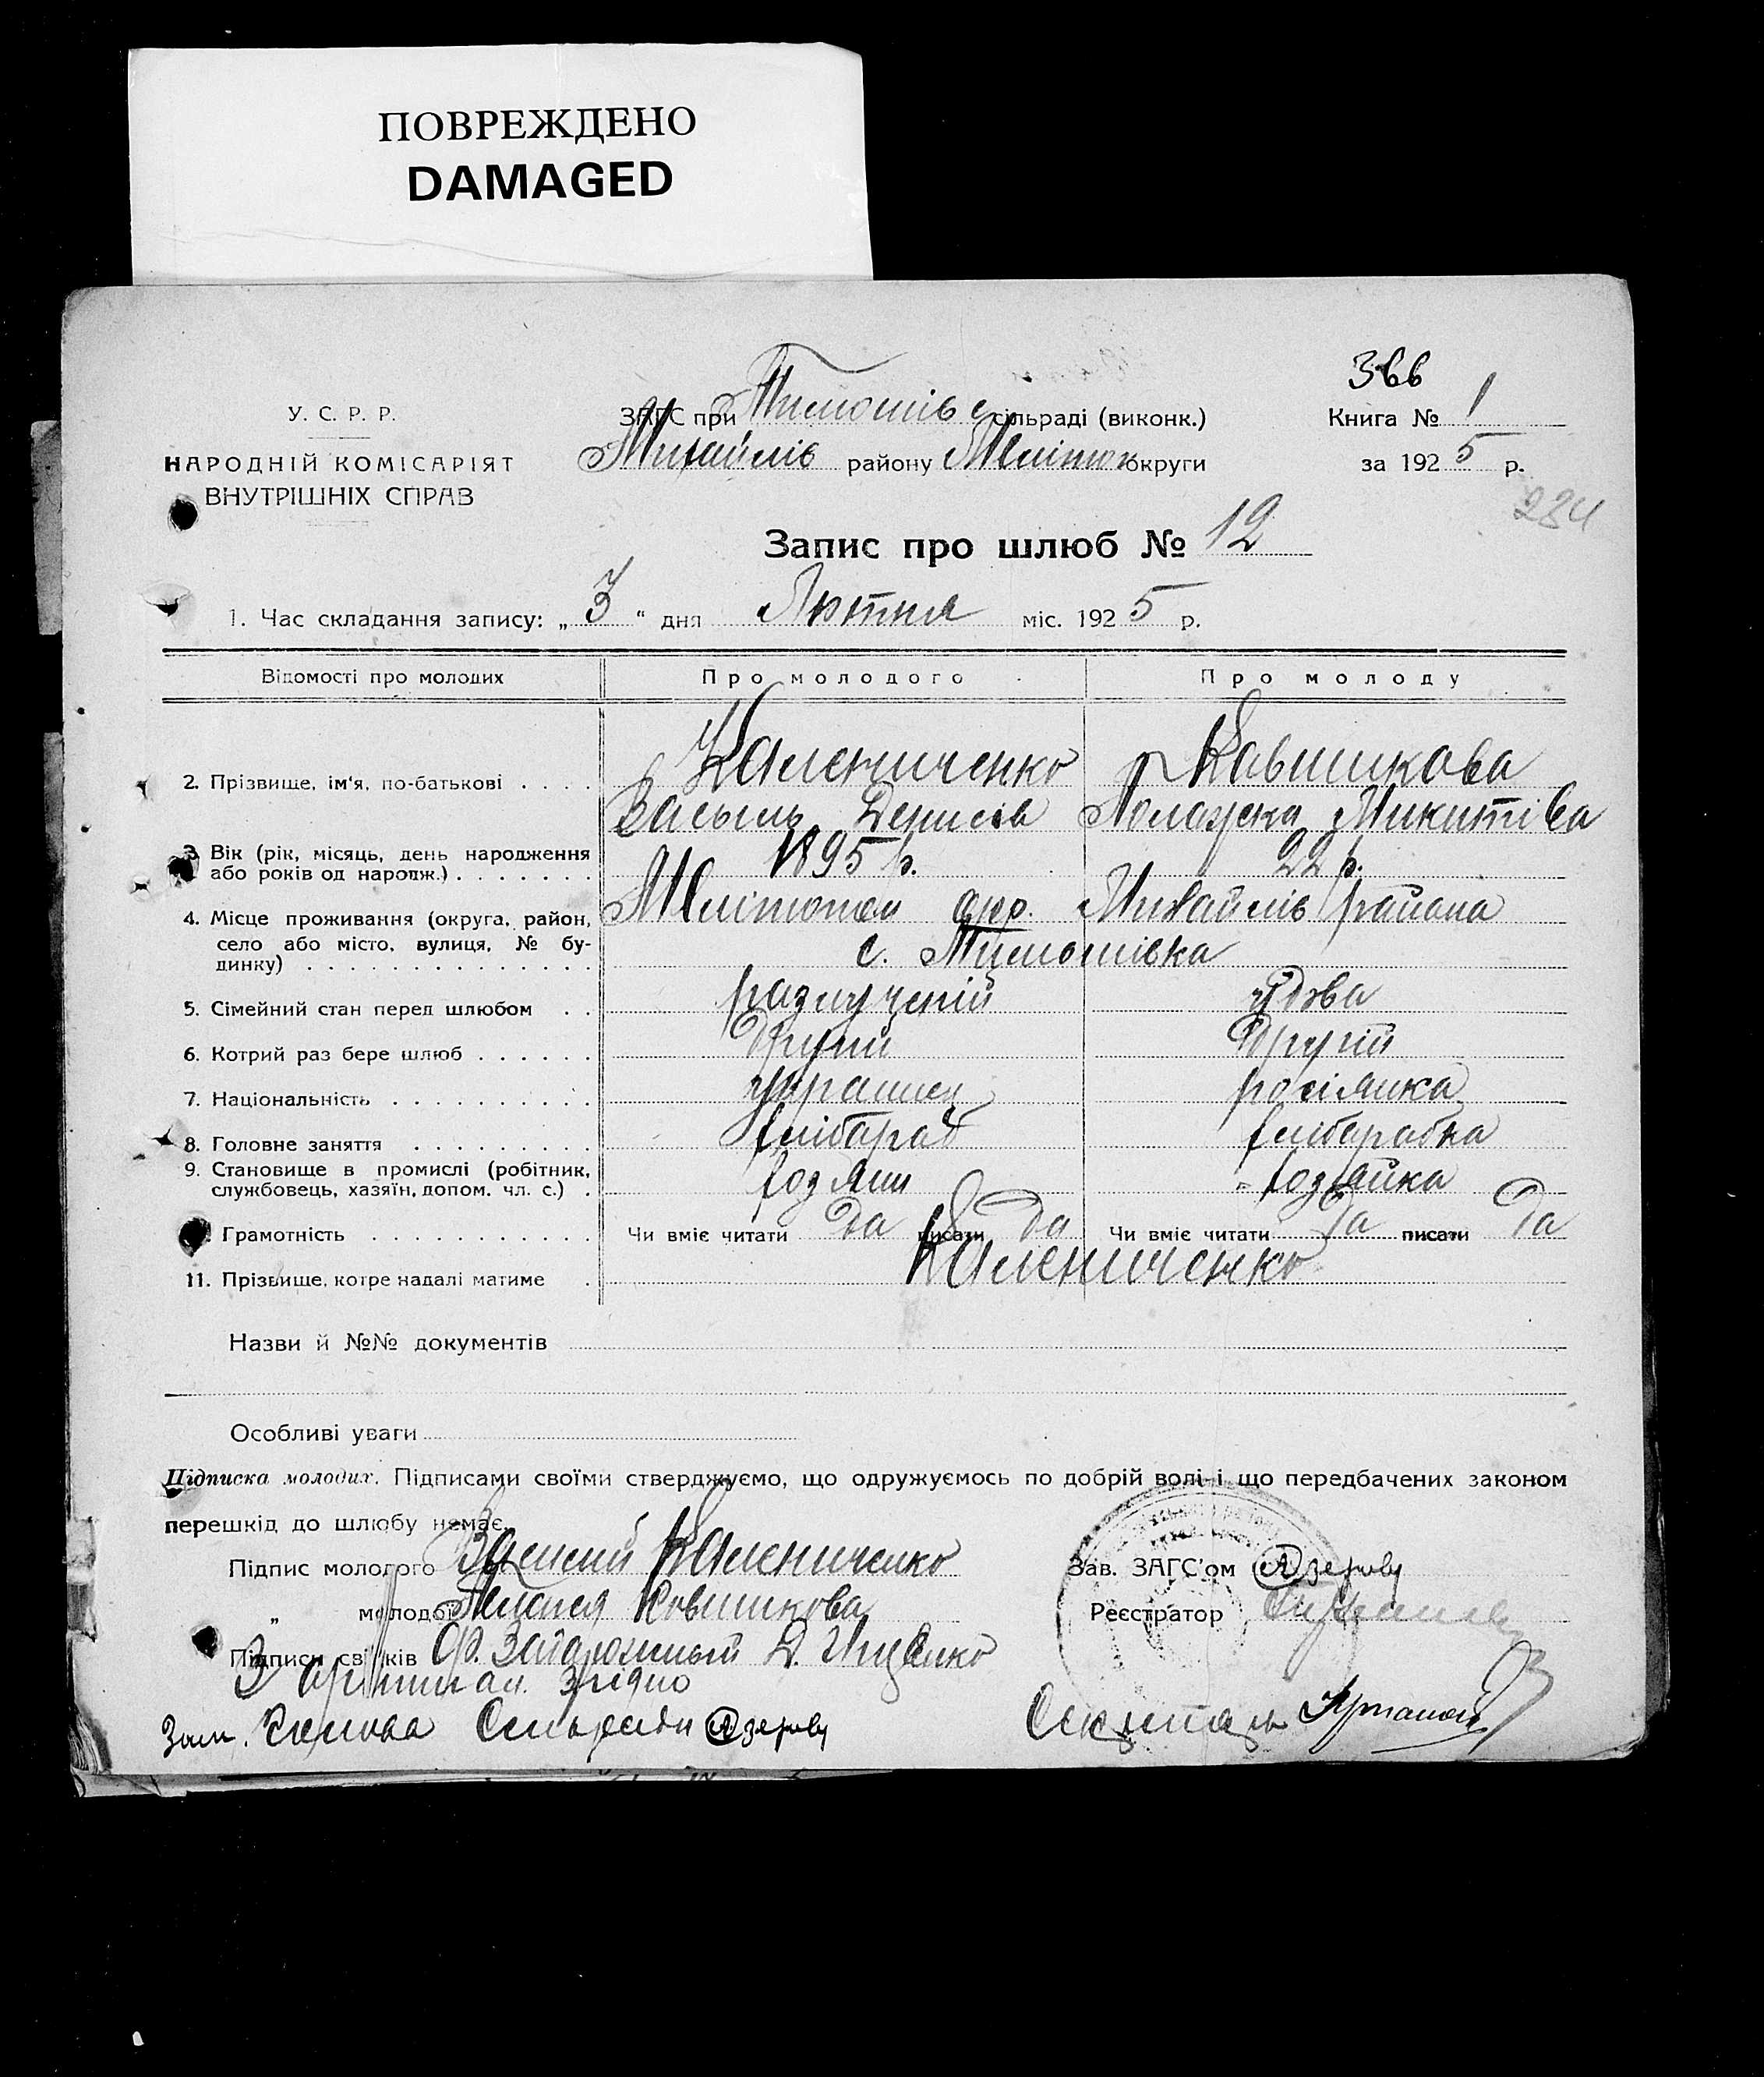 ПОВРЕЖДЕНО
DAMAGED
366
У. С. Р. Р.
НАРОДНІЙ КОМІСАРІЯТ
ВНУТРІШНІХ СПРАВ
ЗАГС при Тимошів с сільраді (виконк.)
Михайлів району Мелітоп округи
Книга № 1
за 1925 р.
284
Запис про шлюб № 12
1. Час складання запису: „ 3 “ дня Лютня міс. 1925 р.
Відомості про молодих Про молодого Про молоду
2. Прізвище, ім'я, по-батькові . . . . Калениченко Ковшикова
Васыль Денисів Полажка Микитіва
3. Вік (рік, місяць, день народження
або років од народж.) . . . . . . . 1895 р. 22 р.
4. Місце проживання (округа, район,
село або місто, вулиця, № бу-
динку) . . . . . . . . . . . . . . Мелітопол окр. Михайлів района
с. Тимошівка
5. Сімейний стан перед шлюбом . . разлученій удова
6. Котрий раз бере шлюб . . . . . . Другий Другій
7. Національність . . . . . . . . . . украинец росіянка
8. Головне заняття . . . . . . . . . хлібароб хлібаробка
9. Становище в промислі (робітник,
службовець, хазяїн, допом. чл. с.) . хозяин хозяйка
Грамотність . . . . . . . . . . . Чи вміє читати Да писати Да Чи вміє читати Да писати Да
11. Прізвище, котре надалі матиме . Калениченко
Назви й №№ документів
Особливі уваги
Підписка молодих. Підписами своїми стверджуємо, що одружуємось по добрій волі і що передбачених законом
перешкід до шлюбу немає.
Підпис молодого Василий Калениченко
„ молодої Ковшикова
Підписи свідків Д. Ищенко
Зав. ЗАГС'ом
Реєстратор
З оригіналом згідно
Зам. Голова Сильради
Секретарь